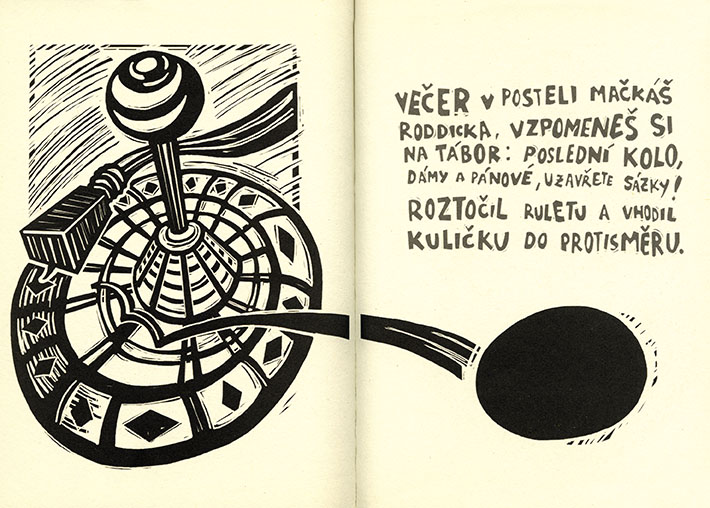 VEČER V POSTELI MAČKÁŠ
RODDICKA, VZPOMENEŠ SI
NA TÁBOR: POSLEDNÍ KOLO,
DÁMY A PÁNOVÉ, UZAVŘETE SÁZKY!
ROZTOČIL RULETU A VHODIL
KULIČKU DO PROTISMĚRU.